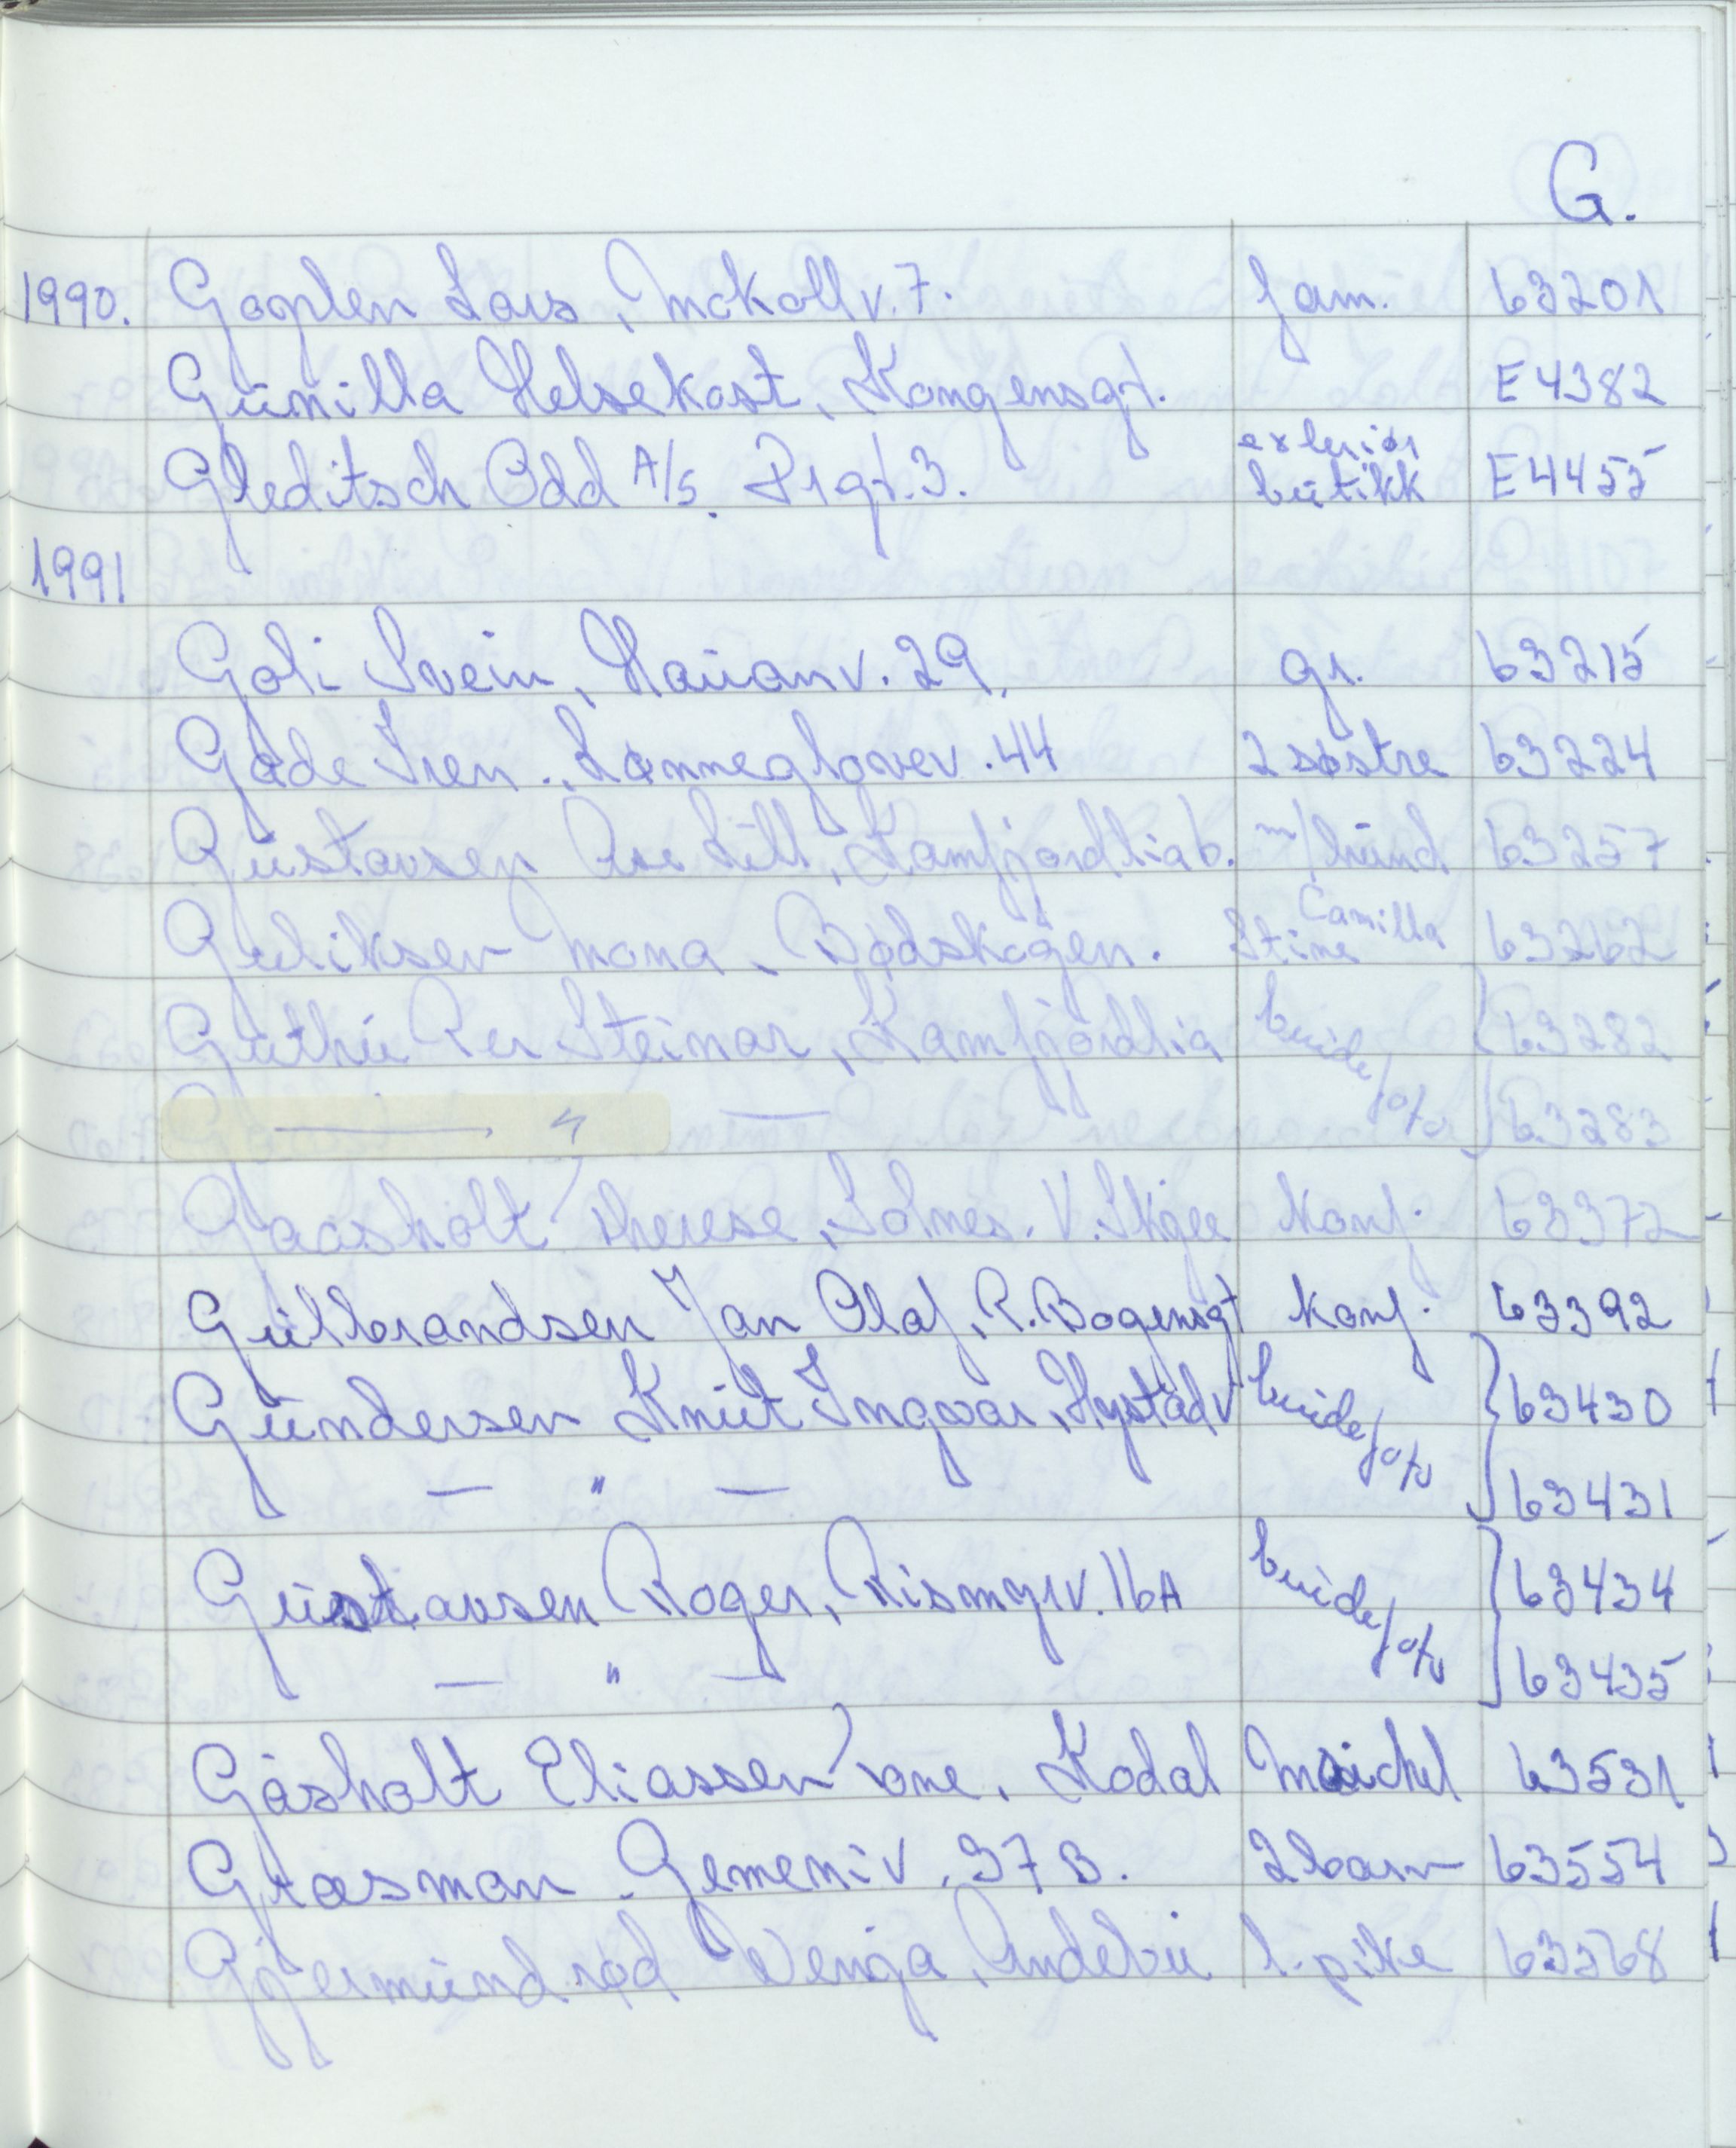 G.
1990. Gooplen Lars, Mokollv. 7. fam. 63201
Günilla Helsekost, Kongensgt. E4382
Gleditsch Odd A/S. Prgt. 3. exteriør bütikk E4455
1991
Goli Svein, Haüanv. 29. gr. 63215
Gade Iren. Lønneglovev. 44 2 søstre 63224
Güstavsen Åse Lill, Kamfjordlia 6. m/hünd 63257
Guliksen Mona, Bødskogen. Stine Camilla 63262
Guthü Per Steinar, Kamfjordlia brude/o/v 63282
— " — 63283
Gaasholt Therese, Solnes. V. Skjee Konf. 63372
Gülbrandsen Jan Olaf, R. Bogensgt Konf. 63392
Gündersen Knüt Ingvar, Hystadv brude/o/v 63430
— " — 63431
Güstavsen Roger, Rismyrv. 16A brude/o/v 63434
— " — 63435
Gåsholt Eliassen Tone, Kodal Maichel 63531
Grasman Gemeniv. 37 B. 2 barn 63554
Gjermündrød Wenja, Andebü l. pike 63568